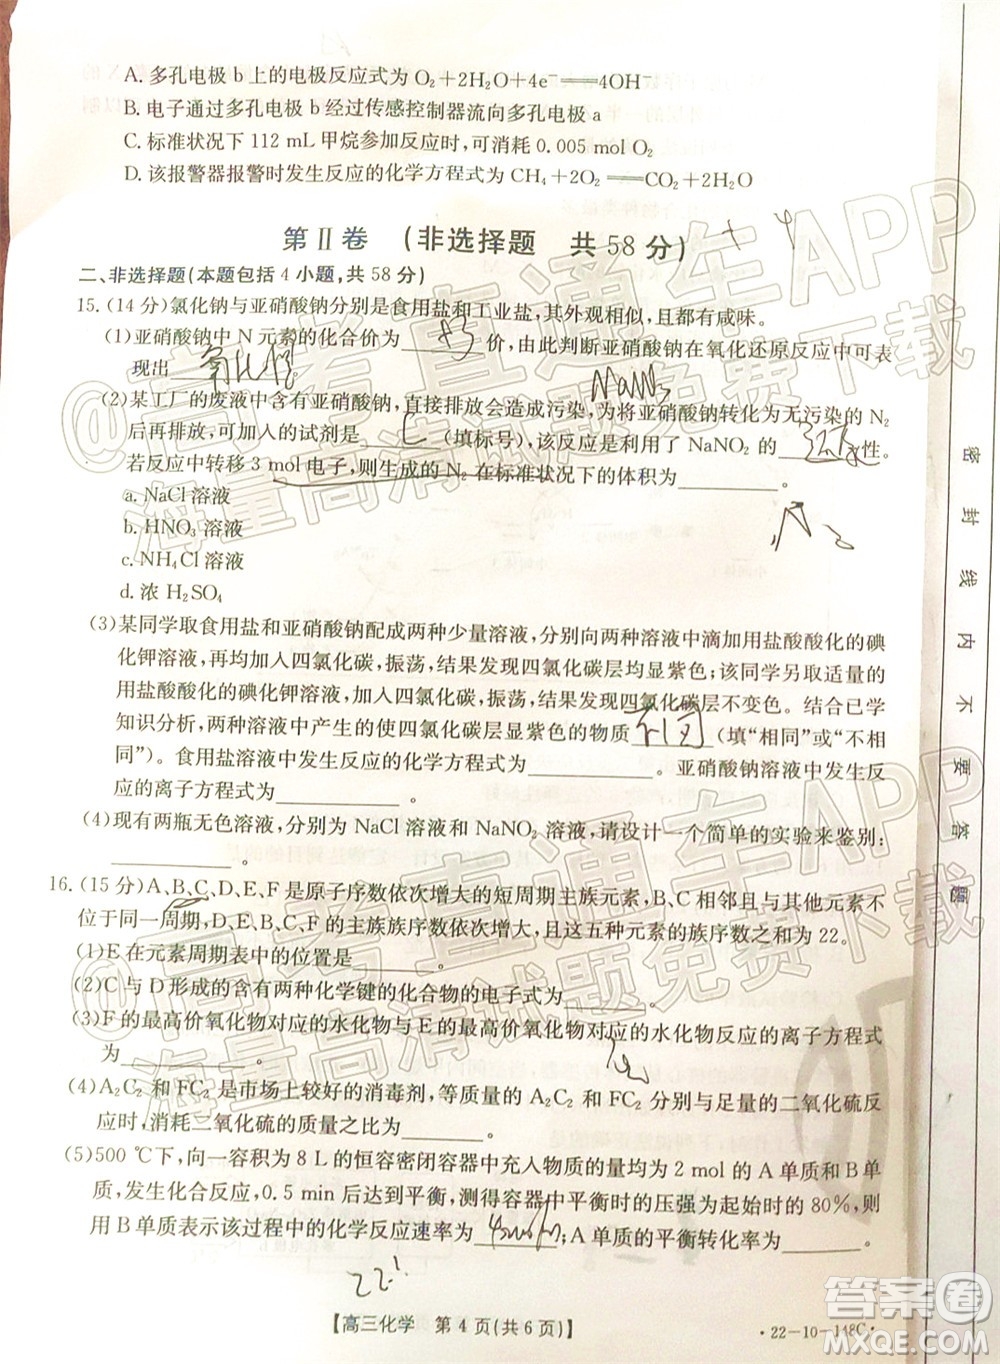 A. 多孔电极 b 上的电极反应式为 O₂+2H₂O+4e⁻══4OH⁻
B. 电子通过多孔电极 b 经过传感控制器流向多孔电极 a
C. 标准状况下 112 mL 甲烷参加反应时,可消耗 0.005 mol O₂
D. 该报警器报警时发生反应的化学方程式为 CH₄+2O₂══CO₂+2H₂O
第Ⅱ卷 (非选择题 共 58 分)
二、非选择题(本题包括 4 小题,共 58 分)
15. (14 分)氯化钠与亚硝酸钠分别是食用盐和工业盐,其外观相似,且都有咸味。
(1)亚硝酸钠中 N 元素的化合价为 +3 价,由此判断亚硝酸钠在氧化还原反应中可表
现出 氧化性
NaNO₂
(2)某工厂的废液中含有亚硝酸钠,直接排放会造成污染,为将亚硝酸钠转化为无污染的 N₂
后再排放,可加入的试剂是 C (填标号),该反应里利用了 NaNO₂ 的 还原 性。
若反应中转移 3 mol 电子,则生成的 N₂ 在标准状况下的体积为________。
a. NaCl 溶液
b. HNO₃ 溶液
c. NH₄Cl 溶液
d. 浓 H₂SO₄
N₂
(3)某同学取食用盐和亚硝酸钠配成两种少量溶液,分别向两种溶液中滴加用盐酸酸化的碘
化钾溶液,再均加入四氯化碳,振荡,结果发现四氯化碳层均显紫色;该同学又将适量的
用盐酸酸化的碘化钾溶液,加入四氯化碳,振荡,结果发现四氯化碳层不变色。结合已学
知识分析,两种溶液中产生的使四氯化碳层显紫色的物质 不同 (填“相同”或“不相
同”)。食用盐溶液中发生反应的化学方程式为________,亚硝酸钠溶液中发生反
应的离子方程式为________。
(4)现有两瓶无色溶液,分别为 NaCl 溶液和 NaNO₂ 溶液,请设计一个简单的实验来鉴别:
________。
16. (15 分)A、B、C、D、E、F 是原子序数依次增大的短周期主族元素,B、C 相邻且与其他元素不
位于同一周期,D、E、F 的主族族序数依次增大,且这五种元素的族序数之和为 22。
(1)E 在元素周期表中的位置是________。
(2)C 与 D 形成的含有两种化学键的化合物的电子式为________。
(3)F 的最高价氧化物对应的水化物与 E 的最高价氧化物对应的水化物反应的离子方程式
为________。
(4)A₂C₂ 和 FC₂ 是市场上较好的消毒剂,等质量的 A₂C₂ 和 FC₂ 分别与足量的二氧化硫反
应时,消耗二氧化硫的质量之比为________。
(5)500 ℃下,向一容积为 8 L 的恒容密闭容器中充入物质的量均为 2 mol 的 A 单质和 B 单
质,发生化合反应,0.5 min 后达到平衡,测得容器中平衡时的压强为起始时的 80%,则
用 B 单质表示该过程中的化学反应速率为________;A 单质的平衡转化率为________。
22.
【高三化学 第 4 页(共 6 页)】
·22-10-148C·
密封线内不要答题
@高考直通车APP
海量高清试题免费下载
@高考直通车APP
海量高清试题免费下载
答案圈
MXQE.COM